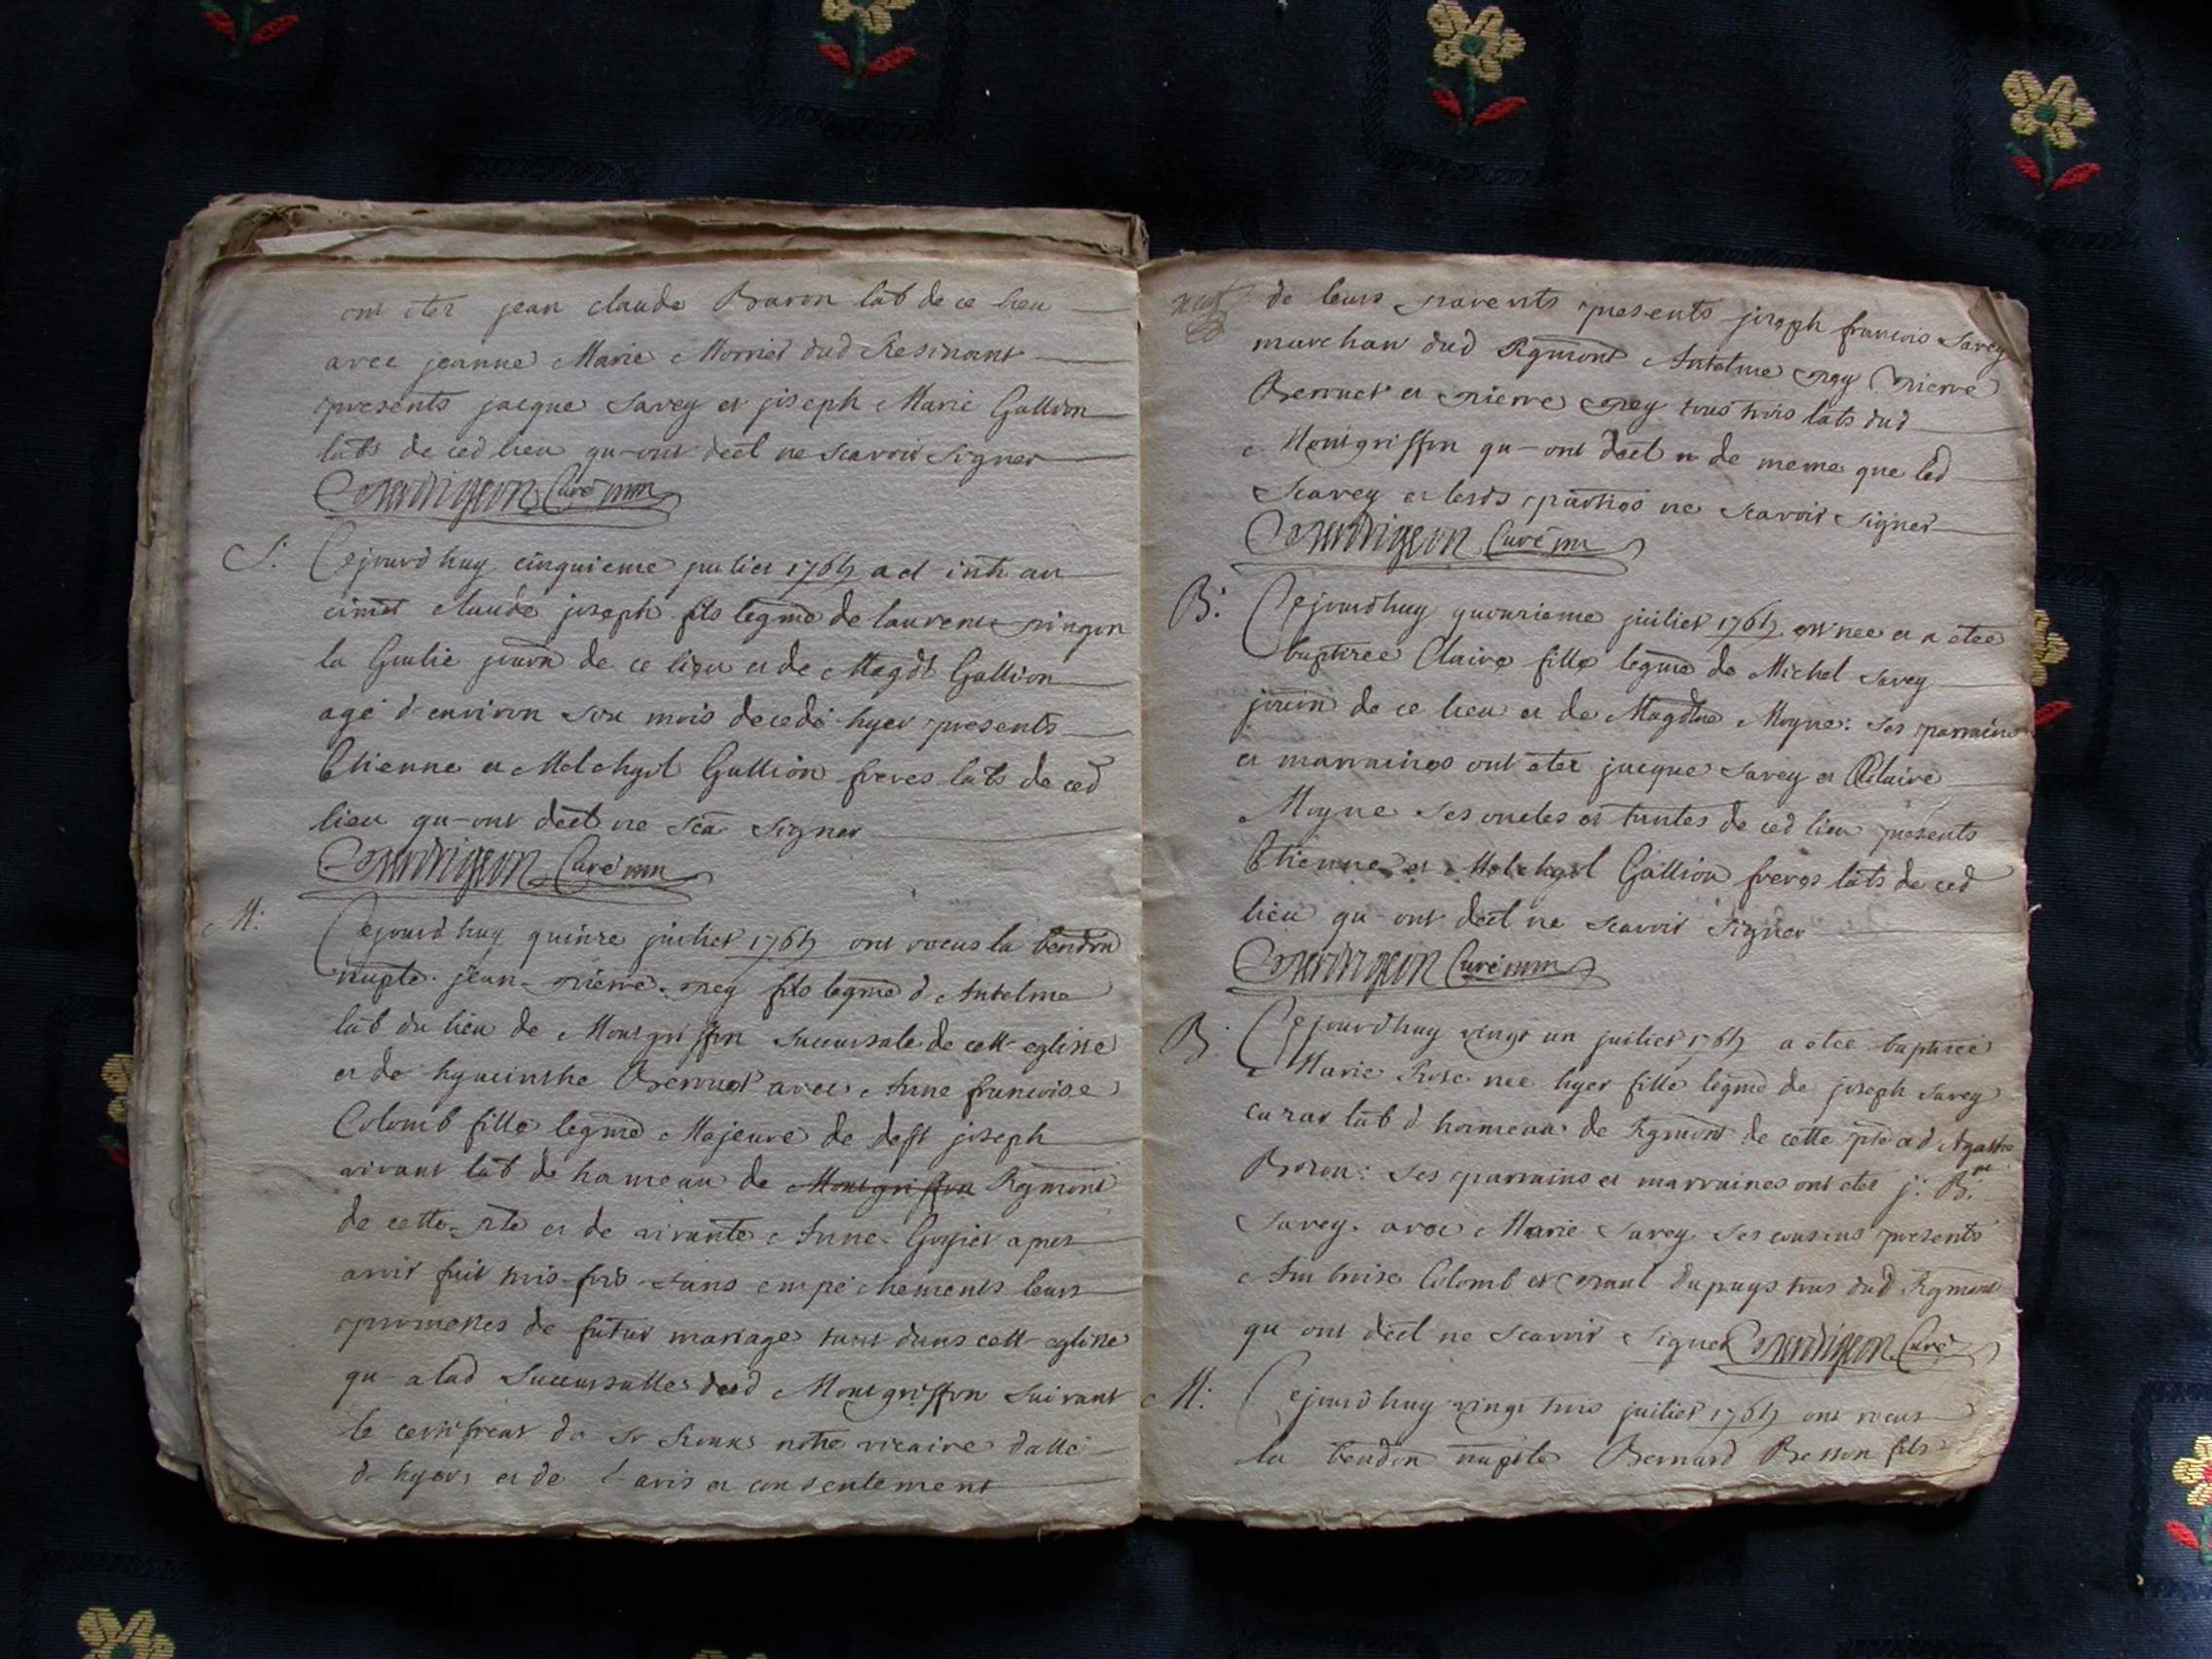 ont eter jean claude Baron lab de ce lieu
avec jeanne Marie Morrier dud Resinant
presents jacque Savey et joseph Marie Gallion
labs de ced lieu qu-ont decl ne scavoir signer
Curé
S: Cejourd huy cinquieme juilier 1764 a et inh au
cimet claude joseph fils legme de laurent pingon
la Gulie journ de ce lieu et de Magdl Gallion
agé d environ six mois decedé hyer presents
Etienne et Melchyol Gallion freres labs de ced
lieu qu-ont decl ne sca signer
Curé
M: Cejourd huy quinze juilier 1764 ont recus la bendon
nupte. jean-pierre pey fils legme d Antelme
lab du lieu de Montgriffon succursale de cett eglisse
et de hyacinthe Berruet avec Anne francoise
Colomb fille legme Majeure de defft joseph
vivant lab de hameau de Montgriffon Rgmont
de cette et de vivante Anne apres
avoir fait trois fois sans empechements leurs
promesses de futur mariage tant dans cett eglisse
qu-a lad succursalle dud Montgriffon suivant
le certificat du Sr notre vicaire datté
d hyer et de l avis et consentement
de leurs parents presents joseph francois Savey
marchan dud Rgmont Antelme pey pierre
Berruet et pierre pey tous trois labs dud
Montgriffon qu-ont decl de meme que led
Savey et lesds parties ne scavoir signer
Curé
B: Cejourdhuy quatorzieme juilier 1764 est nee et a etee
baptizee Claire fille legme de Michel Savey
journ de ce lieu et de Magdlne Moyne: ses parrains
et marraines ont eter jacque Savey et Claire
Moyne ses oncles et tantes de ced lieu presents
Etienne et Melchyol Gallion freres labs de ced
lieu qu ont decl ne scavoir signer
Curé
B: Cejourdhuy vingt un juilier 1764 a etee baptisee
Marie Rose nee hyer fille legme de joseph Savey
cazar lab d hameau de Rgmont de cette et d Agathe
Bozon: ses parrains et marraines ont eter j: B:
Savey. avec Marie Savey ses cousins presents
Ambroise Colomb et dupuys tous dud Rgmont
qu ont decl ne scavoir signer Curé
M: Cejourdhuy vingt trois juilier 1764 ont recus
la bendon nupte Bernard Besson fils